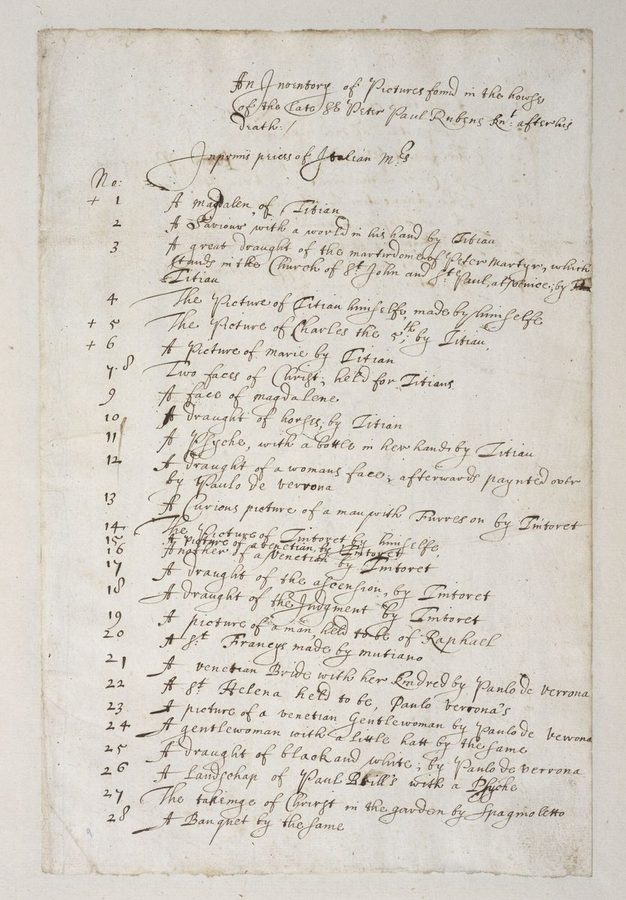 An Inventory of Pictures found in the howse
of the late Sr Peter Paul Rubens Knt: after his
death: /
Inprimis peices of Italian Mrs
No:
+ 1 A magdalen, of Titian
2 A Saviour with a world in his hand by Titian
3 A great draught of the martirdome of Peter Martyr, which
stands in the Church of St John and Ste Paul, at Venice; by
Titian
4 The Picture of Titian himselfe, made by himselfe
+ 5 The Picture of Charles the 5th; by Titian,
+ 6 A Picture of marie by Titian
7. 8 Two faces of Christ, held for Titians
9 A face of magdalene
10 A draught of horses, by Titian
11 A Psyche, with a bottle in her hand, by Titian
12 A draught of a womans face, afterwards paynted over
by Paulo de verrona
13 A Curious picture of a man with Furres on by Tintoret
14 The Picture of Tintoret by himselfe
15 A picture of a venetian, by Tintoret
16 Another of a venetian by Tintoret
17 A draught of the ascension, by Tintoret
18 A draught of the Judgment by Tintoret
19 A picture of a man held to be of Raphael
20 A St Francys made by mutiano
21 A venetian Bride with her kindred by Paulo de verrona
22 A St Helena held to be, Paulo verrona's
23 A picture of a venetian Gentlewoman by Paulo de verrona
24 A gentlewoman with a little hatt by the same
25 A draught of black and white; by Paulo de verrona
26 A Landschap of Paul Brill's with a Psyche
27 The takinge of Christ in the garden by Spagnoletto
28 A Banquet by the same